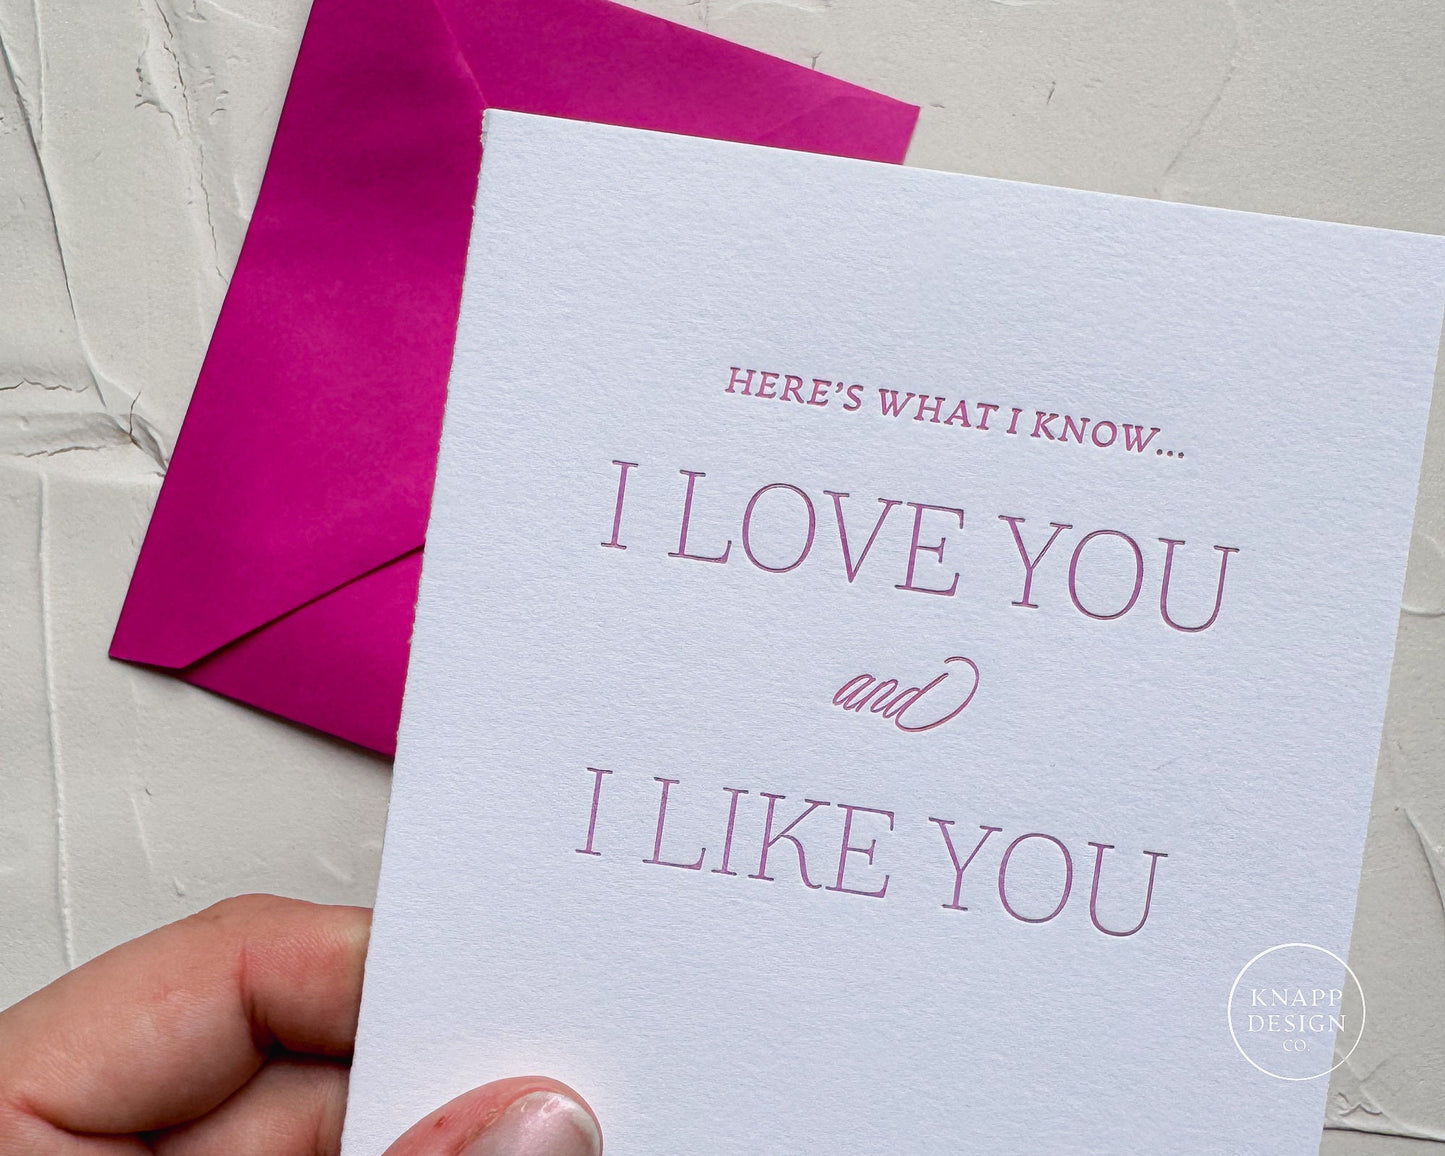 HERE'S WHAT I KNOW...
I LOVE YOU
and
I LIKE YOU
KNAPP
DESIGN
CO.